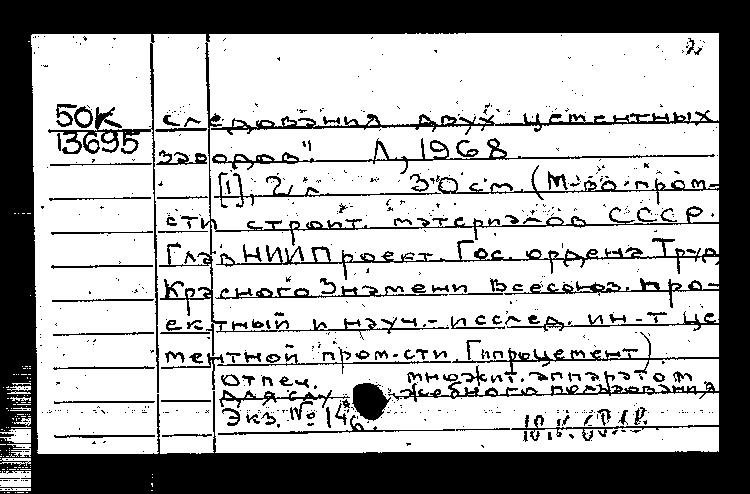 2
50К следования двух цементных
13695 заводов". Л, 1968
[1], 2 л. 30 см. (М-во пром-
сти строит. материалов СССР.
ГлавНИИПроект. Гос. ордена Труд
Красного Знамени Всесоюз. про-
ектный и науч.-исслед. ин-т це
ментной пром-сти „Гипроцемент").
Отпеч. множит. аппаратом
для слу жебного пользования
Экз. №